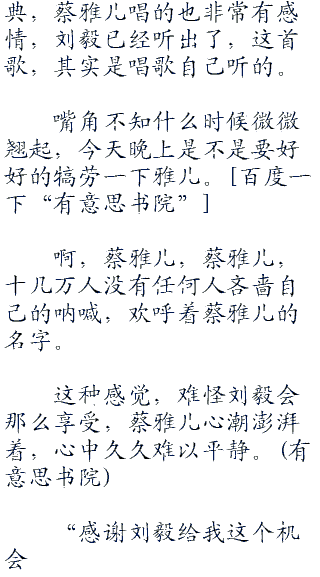 典，蔡雅儿唱的也非常有感
情，刘毅已经听出了，这首
歌，其实是唱歌自己听的。
嘴角不知什么时候微微
翘起，今天晚上是不是要好
好的犒劳一下雅儿。[百度一
下“有意思书院”]
啊，蔡雅儿，蔡雅儿，
十几万人没有任何人吝啬自
己的呐喊，欢呼着蔡雅儿的
名字。
这种感觉，难怪刘毅会
那么享受，蔡雅儿心潮澎湃
着，心中久久难以平静。(有
意思书院)
“感谢刘毅给我这个机
会